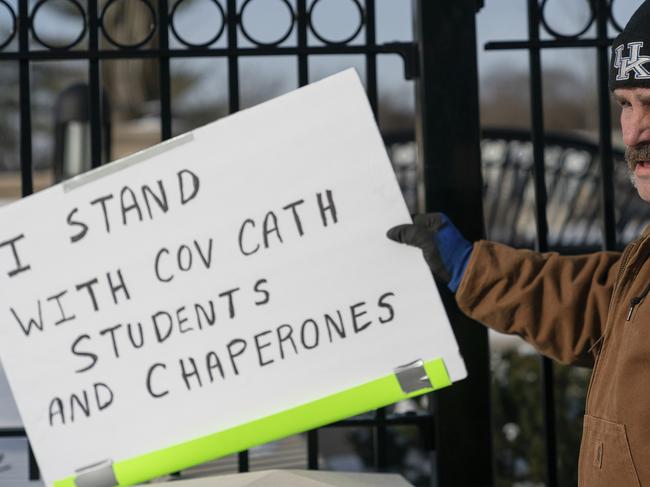 I STAND
WITH COV CATH
STUDENTS
AND CHAPERONES
UK